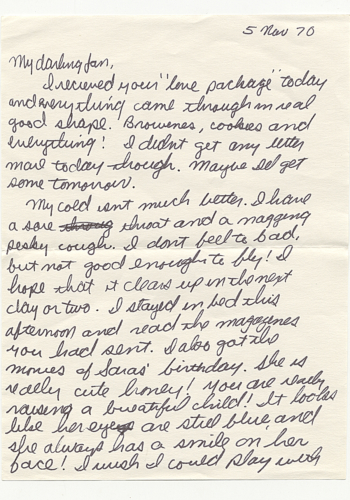 5 Nov 70
My darling Jan,
I received your "love package" today
and everything came through in real
good shape. Brownes, cookies and
everything! I didn't get any letter
mail today though. Maybe I'll get
some tomorrow.
My cold isn't much better. I have
a sore throat and a nagging
pesky cough. I don't feel to bad,
but not good enough to fly! I
hope that it clears up in the next
day or two. I stayed in bed this
afternoon and read the magazines
you had sent. I also got the
movies of Saras' birthday. She is
really cute honey! You are really
raising a beautiful child! It looks
like her eyes are still blue and
she always has a smile on her
face! I wish I could play with